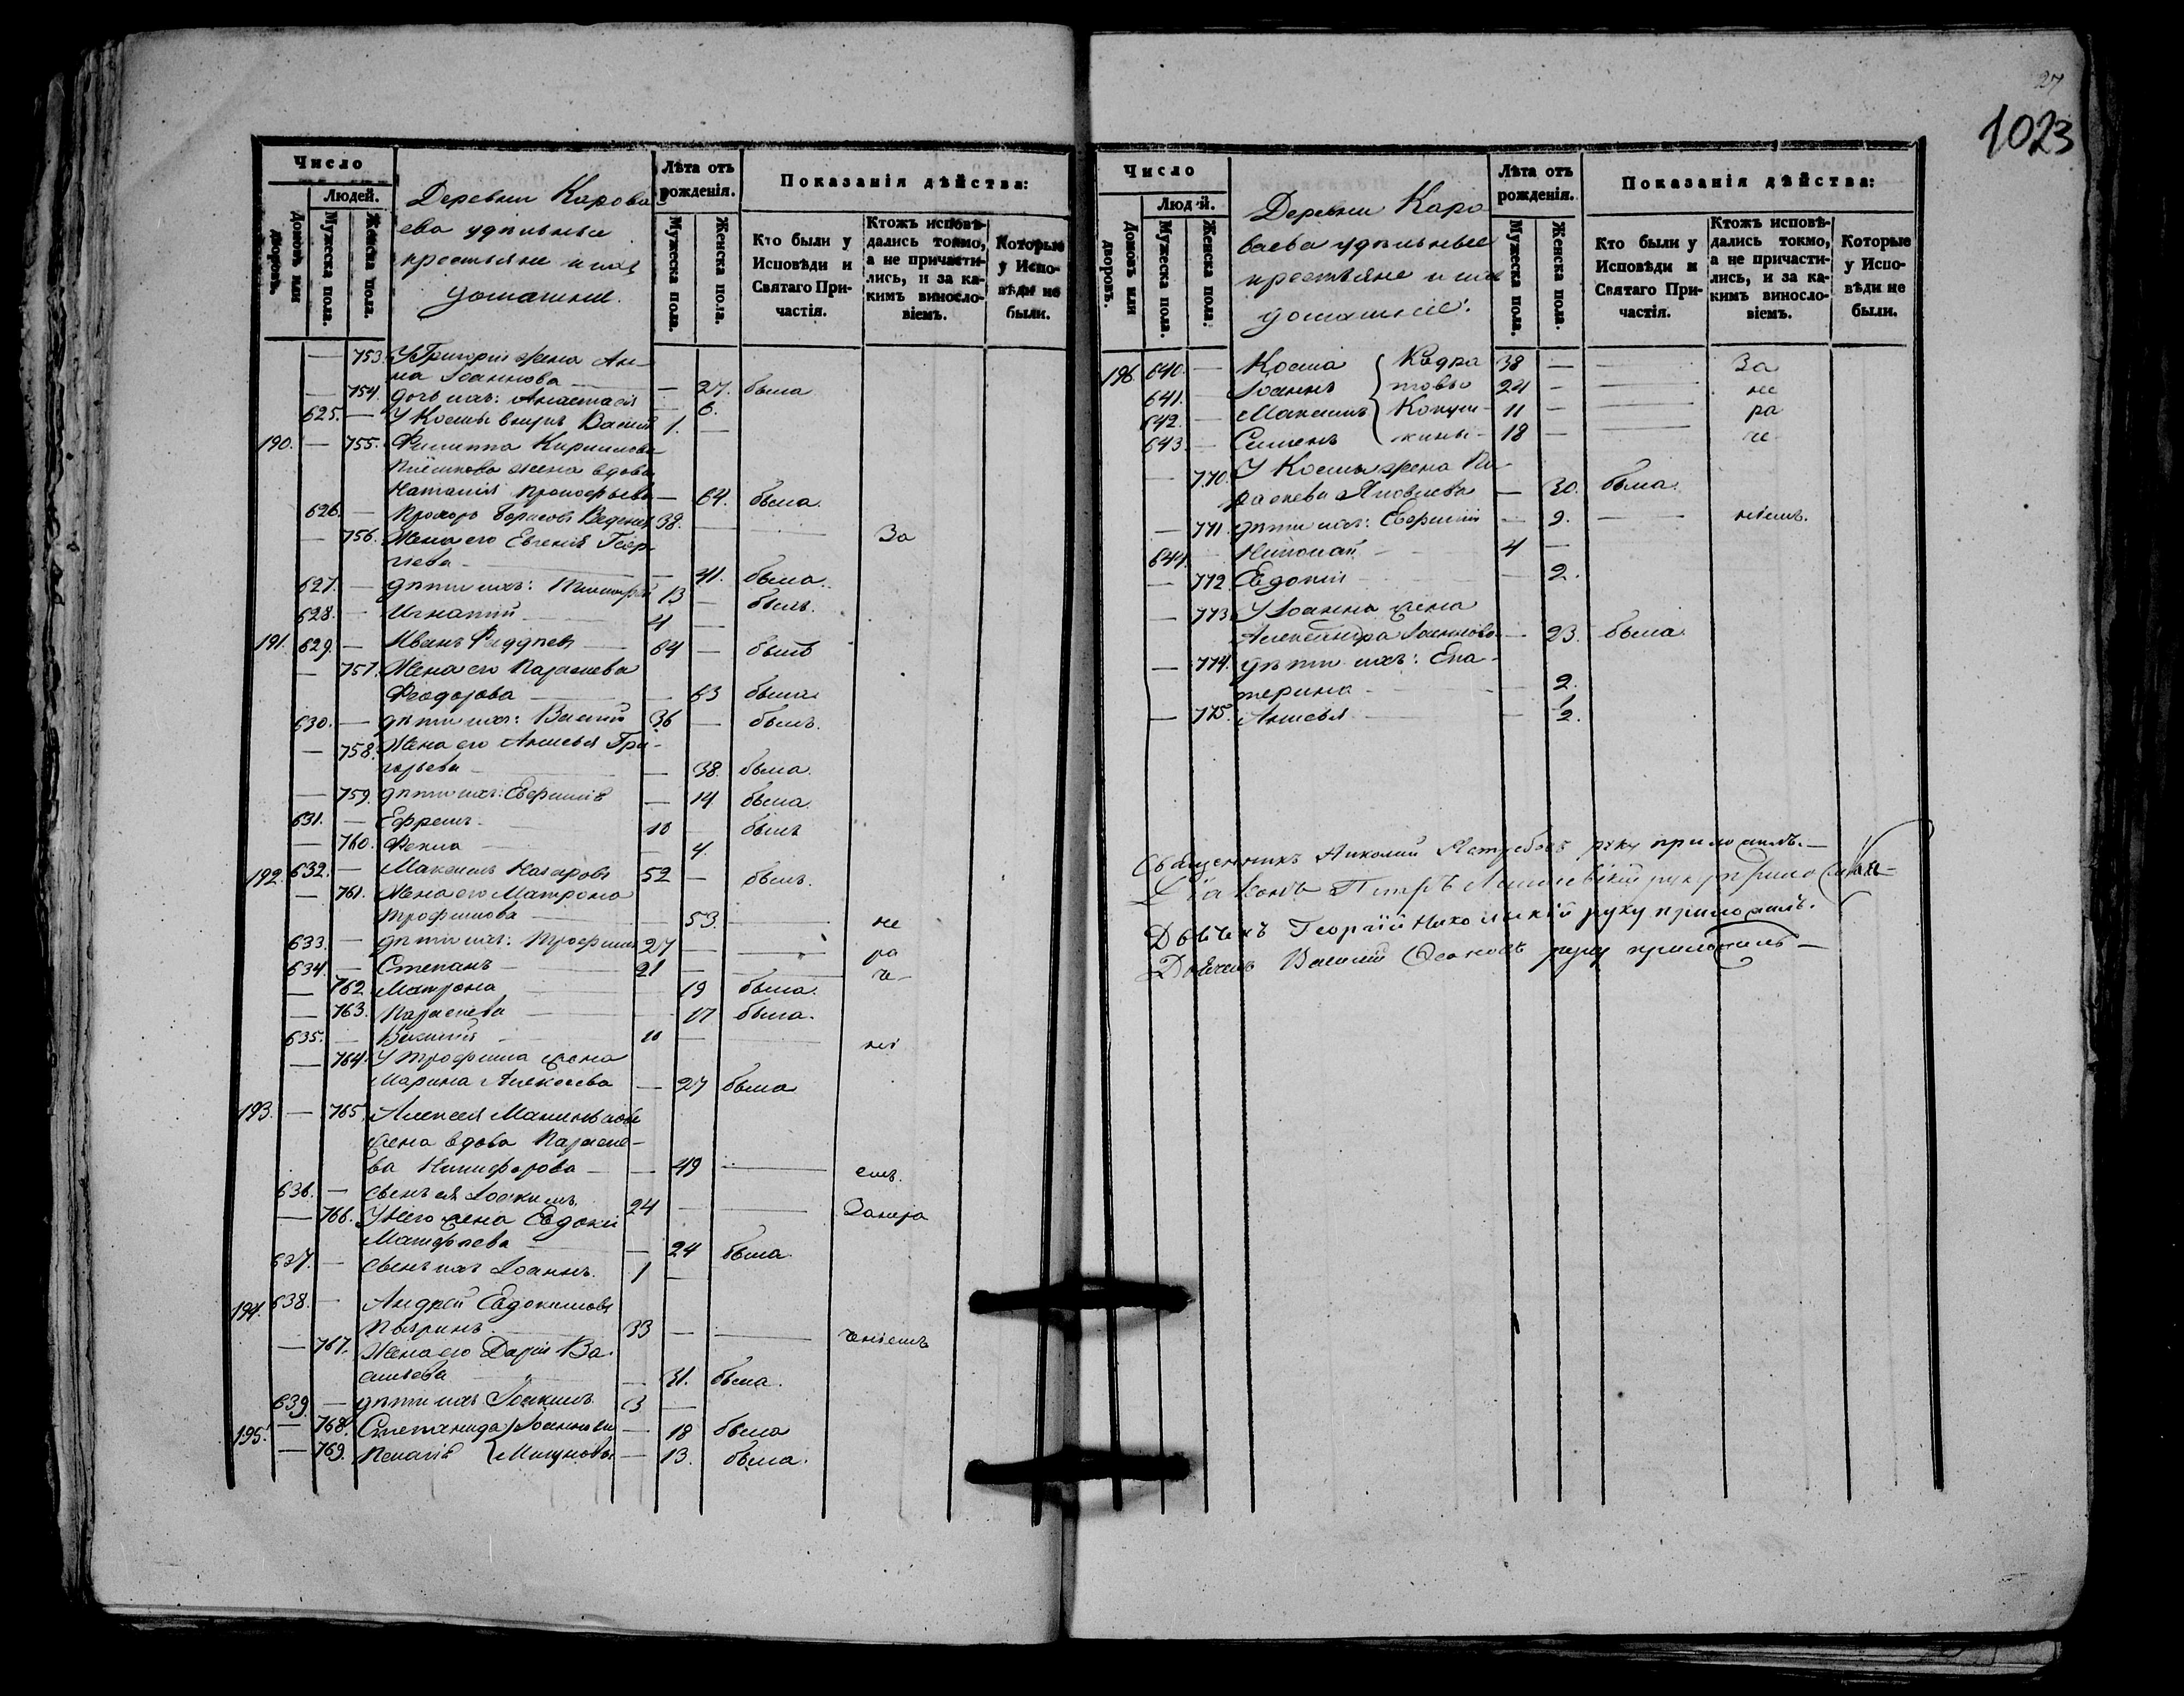 27
1023
Число
Людей.
Домовъ или дворовъ.
Мужеска пола.
Женска пола.
Деревни Карова-
ева удѣльные
крестьяне и ихъ
домашніе.
Лѣта отъ рожденія.
Мужеска пола.
Женска пола.
Показанія дѣйства:
Кто были у Исповѣди и Святаго Причастія.
Ктожъ исповѣдались токмо, а не причастились, и за какимъ винословіемъ.
Которые у Исповѣди не были.
— 753. У Григорія жена Ан-
на Іоаннова — 27. была
— 754. дочь ихъ: Анастасія — 6.
625. — У Космы внукъ Василій 1. —
190. — 755. Филиппа Кириллова
жена вдова
Наталія Прокофьева — 64. была.
626. — Прохоръ Борисовъ 38. — — За
— 756. Жена его Евгенія Геор-
гіева — 41. была.
627. — дѣти ихъ: 13 — былъ.
628. — Игнатій 4 —
191. 629. — Иванъ Фаддѣевъ 64 — былъ
— 757. Жена его Параскева
Феодорова — 63 была
630. — дѣти ихъ: Василій 36 — былъ.
— 758. Жена его Анисья Гри-
горьева — 38. была.
— 759. дѣти ихъ: Евфимія — 14 была.
631. — Ефремъ 10 — былъ
— 760. Фекла — 4.
192. 632. — Максимъ Назаровъ 52 — былъ.
— 761. Жена его Матрона
Трофимова — 53. — не
633. — дѣти ихъ: Трофимъ 27 — — ра
634. — Степанъ 21 — — че-
— 762. Матрона 19 была.
— 763. Параскева 17 была.
635. — Василій 10 — ні
— 764. У Трофима жена
Марина Алексѣева — 27 была
193. — 765. Алексея
жена вдова Параске-
ва Никифорова — 49 — емъ.
636. — Сынъ ея Іоакимъ 24 — — Занера
— 766. У него жена Евдокія
Матфѣева — 24 была.
637. — Сынъ ихъ Іоаннъ. 1 —
194. 638. — Андрей Евдокимовъ
33 — — ченіемъ
— 767. Жена его Дарія Ва-
сильева — 31. была.
639. — дѣти ихъ Іоакимъ 3 —
195. — 768. Степанида Іоанновы — 18 была
— 769. Пелагія — 13. была.
Число
Людей.
Домовъ или дворовъ.
Мужеска пола.
Женска пола.
Деревни Каро-
ваева удѣльные
крестьяне и ихъ
домашніе:
Лѣта отъ рожденія.
Мужеска пола.
Женска пола.
Показанія дѣйства:
Кто были у Исповѣди и Святаго Причастія.
Ктожъ исповѣдались токмо, а не причастились, и за какимъ винословіемъ.
Которые у Исповѣди не были.
196. 640. — Косма Кодра 38 — — За
641. — Іоаннъ товы 24 — — не
642. — Максимъ 11 — — ра
643. — Симеонъ 18 — — че-
— 770. У Космы жена Па-
раскева Яковлева — 30. была.
— 771. дѣти ихъ: Евфимія — 9. — ніемъ.
644. — Николай 4 —
— 772. Евдокія — 2.
— 773. У Іоанна жена
Александра Іоаннова — 23. была
— 774. дѣти ихъ: Ека-
терина — 2.
— 775. Анисья — 1/2.
Священникъ Николай Ястребовъ руку приложилъ.—
Діаконъ Петръ руку приложилъ
Дьячекъ Георгій Никольскій руку приложилъ.
Дьячекъ Василій руку приложилъ—